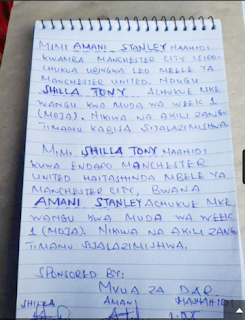 MIMI AMANI STANLEY NAAHIDI
KWAMBA MANCHESTER CITY ISIPO-
CHUKUA UBINGWA LEO MBELE YA
MANCHESTER UNITED. NDUGU
SHILLA TONY ACHUKUE MKE
WANGU KWA MUDA WA WEEK 1
(MOJA). NIKIWA NA AKILI ZANGU
TIMAMU KABISA SIJALAZIMISHWA.
MIMI SHILLA TONY NAAHIDI
KUWA ENDAPO MANCHESTER
UNITED HAITASHINDA MBELE YA
MANCHESTER CITY, BWANA
AMANI STANLEY ACHUKUE MKE
WANGU KWA MUDA WA WEEK
1 (MOJA). NIKIWA NA AKILI ZANGU
TIMAMU SIJALAZIMISHWA.
SPONSORED BY:
MVUA ZA DAR.
SHILLA AMANI MASHAHIDI